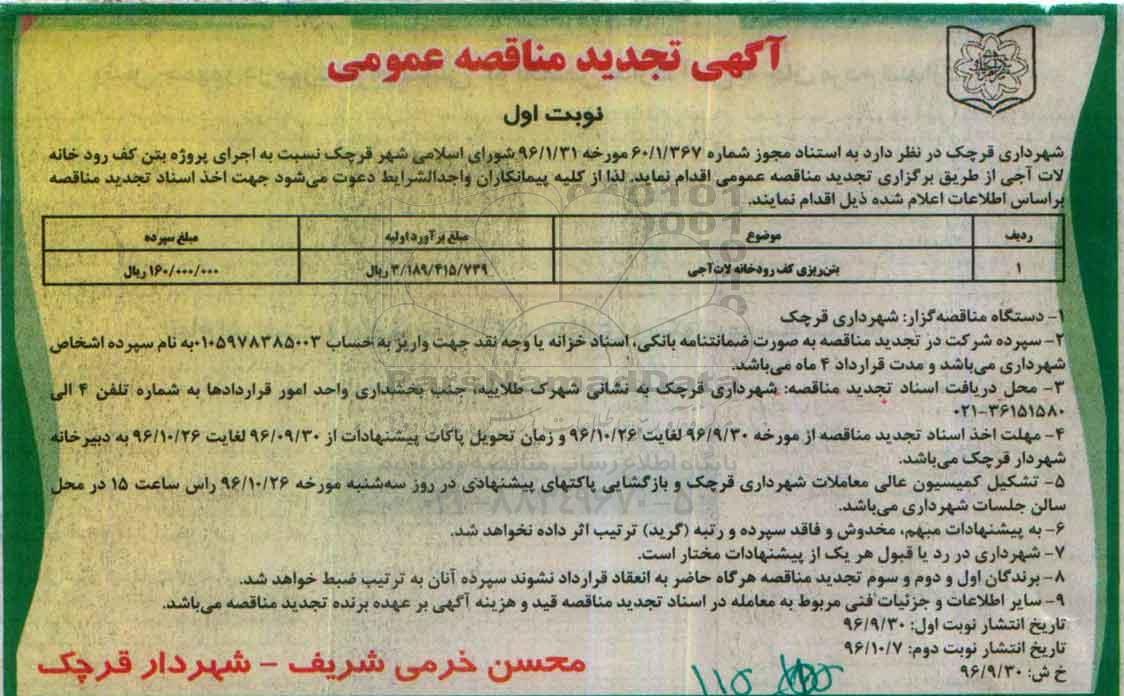 آگهی تجدید مناقصه عمومی
نوبت اول
شهرداری قرچک در نظر دارد به استناد مجوز شماره ۶۰/۱/۳۶۷ مورخه ۹۶/۱/۳۱ شورای اسلامی شهر قرچک نسبت به اجرای پروژه بتن کف رود خانه
لات آجی از طریق برگزاری تجدید مناقصه عمومی اقدام نماید. لذا از کلیه پیمانکاران واجدالشرایط دعوت می‌شود جهت اخذ اسناد تجدید مناقصه
براساس اطلاعات اعلام شده ذیل اقدام نمایند.
ردیف موضوع مبلغ برآورد اولیه مبلغ سپرده
۱ بتن‌ریزی کف رودخانه لات‌آجی ۳/۱۸۹/۴۱۵/۷۳۹ ریال ۱۶۰/۰۰۰/۰۰۰ ریال
۱- دستگاه مناقصه‌گزار: شهرداری قرچک
۲- سپرده شرکت در تجدید مناقصه به صورت ضمانتنامه بانکی، اسناد خزانه یا وجه نقد جهت واریز به حساب ۰۱۰۵۹۷۸۳۸۵۰۰۳ به نام سپرده اشخاص
شهرداری می‌باشد و مدت قرارداد ۴ ماه می‌باشد.
۳- محل دریافت اسناد تجدید مناقصه: شهرداری قرچک به نشانی شهرک طلاییه، جنب بخشداری واحد امور قراردادها به شماره تلفن ۴ الی
۰۲۱-۳۶۱۵۱۵۸۰
۴- مهلت اخذ اسناد تجدید مناقصه از مورخه ۹۶/۹/۳۰ لغایت ۹۶/۱۰/۲۶ و زمان تحویل پاکات پیشنهادات از ۹۶/۰۹/۳۰ لغایت ۹۶/۱۰/۲۶ به دبیرخانه
شهردار قرچک می‌باشد.
۵- تشکیل کمیسیون عالی معاملات شهرداری قرچک و بازگشایی پاکتهای پیشنهادی در روز سه‌شنبه مورخه ۹۶/۱۰/۲۶ راس ساعت ۱۵ در محل
سالن جلسات شهرداری می‌باشد.
۶- به پیشنهادات مبهم، مخدوش و فاقد سپرده و رتبه (گرید) ترتیب اثر داده نخواهد شد.
۷- شهرداری در رد یا قبول هر یک از پیشنهادات مختار است.
۸- برندگان اول و دوم و سوم تجدید مناقصه هرگاه حاضر به انعقاد قرارداد نشوند سپرده آنان به ترتیب ضبط خواهد شد.
۹- سایر اطلاعات و جزئیات فنی مربوط به معامله در اسناد تجدید مناقصه قید و هزینه آگهی بر عهده برنده تجدید مناقصه می‌باشد.
تاریخ انتشار نوبت اول: ۹۶/۹/۳۰
تاریخ انتشار نوبت دوم: ۹۶/۱۰/۷
خ ش: ۹۶/۹/۳۰
محسن خرمی شریف - شهردار قرچک